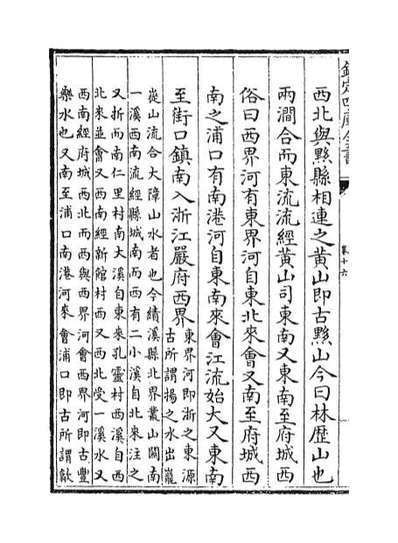 欽定四庫全書
卷十六
西北與黟縣相連之黃山即古黟山今曰林歷山也
兩澗合而東流流經黃山司東南又東南至府城西
俗曰西界河有東界河自東北來會又南至府城西
南之浦口有南港河自東南來會江流始大又東南
至街口鎮南入浙江嚴府西界
東界河即浙之東源
古所謂揚之水出巃
嵸山流合大障山水者也今績溪縣北界叢山關南
一溪西南流經縣城南而西有二小溪自北來注之
又折而南仁里村南大溪自東來孔靈村西溪自西
北來並會又西南經新館村西又西北受一溪水又
西南經府城西北而西與西界河會西界河即古豐
樂水也又南至浦口南港河來會浦口即古所謂歙